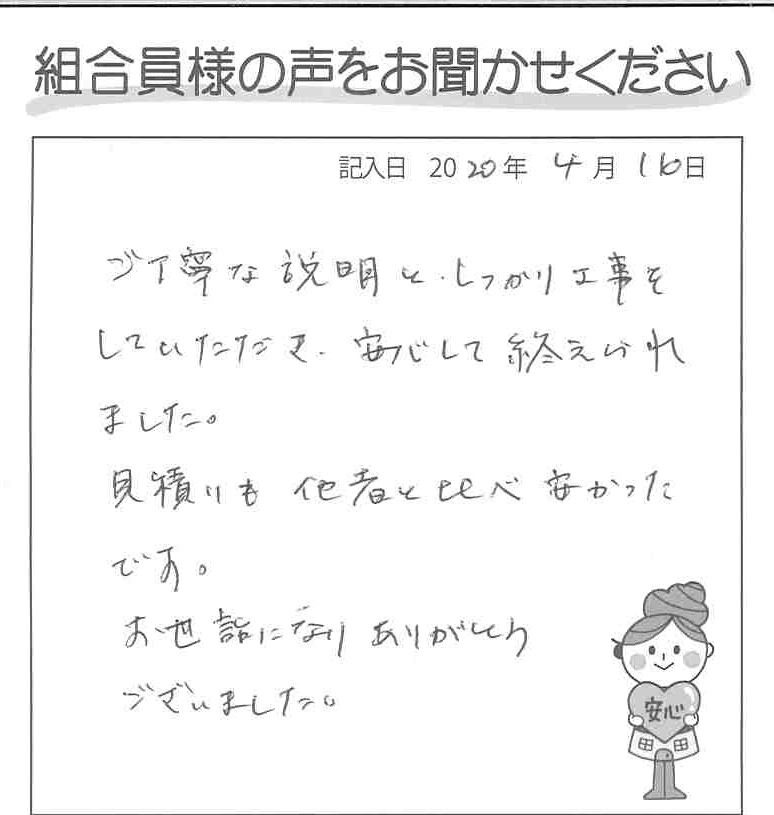 組合員様の声をお聞かせください
記入日 2020年 4月 16日
ご丁寧な説明と、しっかり工事を
していただき、安心して終えられ
ました。
見積りも他者と比べ安かった
です。
お世話になりありがとう
ございました。
安心